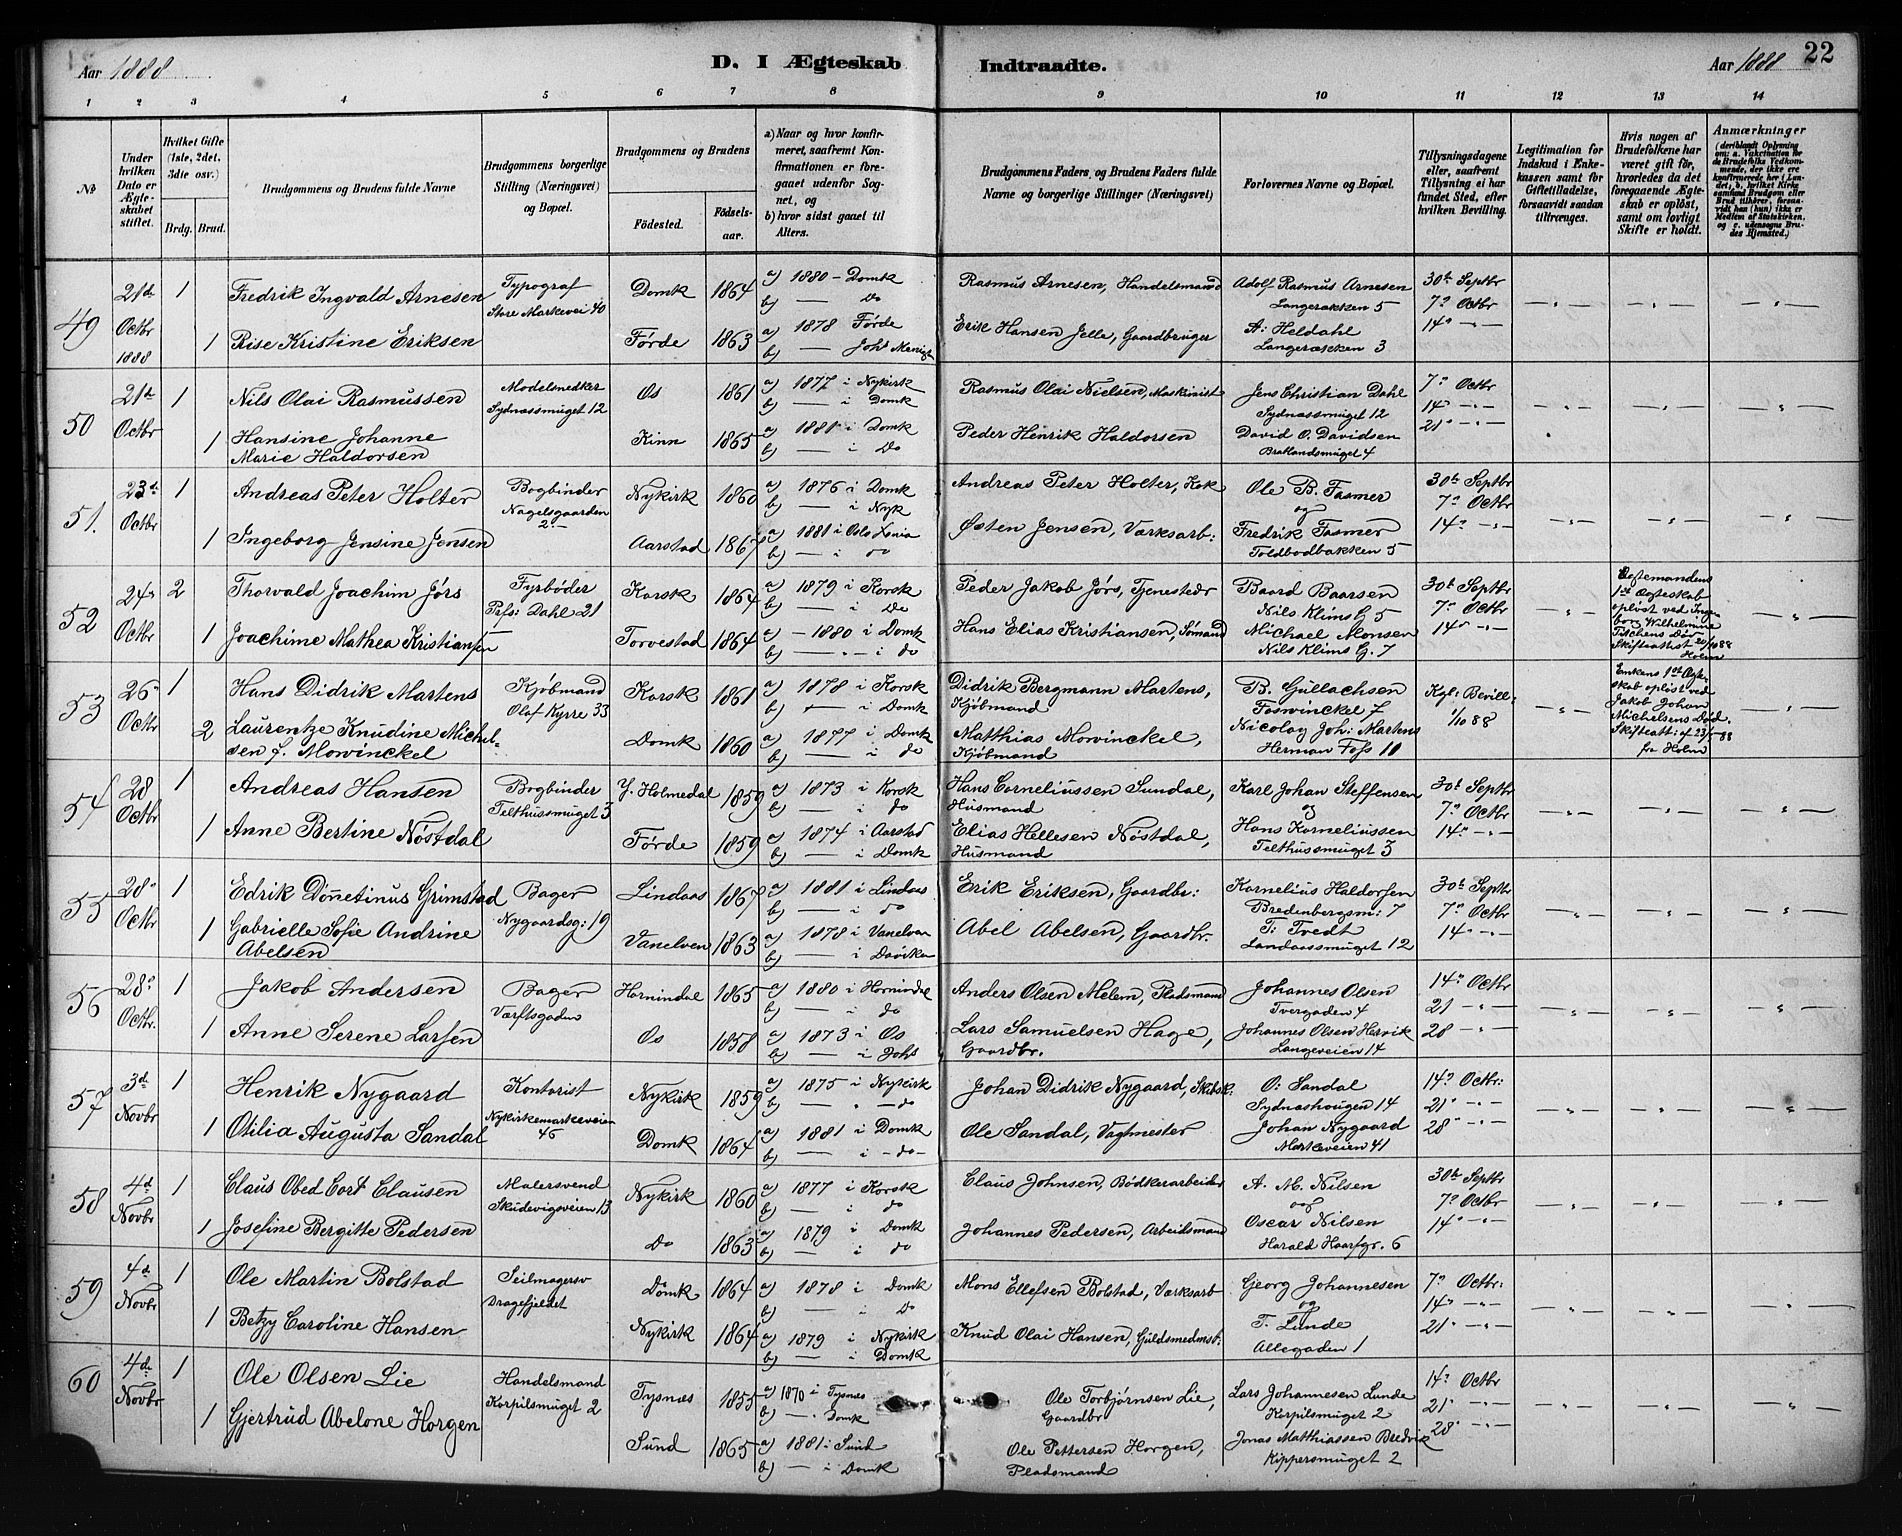 Aar 1888 D. I Ægteskab Indtraadte. Aar 1888 22
1 2 3 4 5 6 7 8 9 10 11 12 13 14
No
Under hvilken Dato er Ægteskabet stiftet.
Hvilket Gifte (1ste, 2det, 3die osv.)
Brdg. Brud.
Brudgommens og Brudens fulde Navne
Brudgommens borgerlige Stilling (Næringsvei) og Bopæl.
Brudgommens og Brudens
Fødested. Fødselsaar.
a) Naar og hvor konfirmeret, saafremt Konfirmationen er foregaaet udenfor Sognet, og
b) hvor sidst gaaet til Alters.
Brudgommens Faders og Brudens Faders fulde Navne og borgerlige Stillinger (Næringsvei)
Forlovernes Navne og Bopæl.
Tillysningsdagene eller, saafremt Tillysning ei har fundet Sted, efter hvilken Bevilling.
Legitimation for Indskud i Enkekassen samt for Giftetilladelse, forsaavidt saadan tiltrænges.
Hvis nogen af Brudefolkene har været gift før, hvorledes da det foregaaende Ægteskab er opløst, samt om lovligt Skifte er holdt.
Anmærkninger (deriblandt Oplysning om: a. Vakcination for de Brudefolks Vedkommende, der ikke ere konfirmerede her i Landet; b. hvilket Kirkesamfund Brudgom eller Brud tilhører, forsaavidt han (hun) ikke er Medlem af Statskirken, og c. udensogns Brudes Hjemsted.)
49 21de Octbr 1888 1 Fredrik Ingvald Arnesen Typograf Store Markevei 40 Domk 1864 a) 1880 - Domk b) — do Rasmus Arnesen, Handelsmand Adolf Rasmus Arnesen Langerækken 5 30te Septbr 7de Octbr
1 Rise Kristine Eriksen Førde 1863 a) 1878 Førde b) — Joh: Menigh Erik Hansen Jelle, Gaardbruger A: Heldahl Langerækken 3 14de —"—
50 21de Octbr 1 Nils Olai Rasmussen Modelsnedker Sydnæssmuget 12 Os 1861 a) 1877 i Nykirk b) — i Domk Rasmus Olai Nielsen, Maskinist Jens Christian Dahl Sydnæssmuget 12 7de Octbr 14 —"—
1 Hansine Johanne Marie Haldorsen Kinn 1865 a) 1881 i Domk b) — i Do Peder Henrik Haldorsen David O. Davidsen Bratlandsmuget 4 21 —"—
51. 23de Octbr 1 Andreas Peter Holter Bogbinder Nagelsgaarden 2 Nykirk 1860 a) 1876 i Domk b) — i Nyk Andreas Peter Holter, Kok Ole B. Fasmer og 30te Septbr 7de Octbr
1 Ingeborg Jensine Jensen Aarstad 1867 a) 1881 i Oslo Xania b) — i do Østen Jensen, Værksarb: Fredrik Fasmer Toldbodbakken 5 14de —"—
52 24de Octbr 2 Thorvald Joachim Jørs Fyrbøder Prfs: Dahl 21 Korsk 1864 a) 1879 i Korsk b) — i Do Peder Jakob Jørs, Tjenestedr Baard Baarsen Nils Klims G. 5 30te Septbr 7de Octbr
Ægtemandens 1ste Ægteskab opløst ved Ingeborg Wilhelmine Titchens Død Skifteattest 20/10 88 Holm
1 Joachime Mathea Kristiansen Torvestad 1864 a) — 1880 i Domk b) —"— i do Hans Elias Kristiansen, Sømand Michael Monsen Nils Klims G. 7 14de —"—
53 26de Octbr 1 Hans Didrik Martens Kjøbmand Olaf Kyrre 33 Korsk 1861 a) 1878 i Korsk b) — i Domk Didrik Bergmann Martens, Kjøbmand B. Gullachsen Foswinckel 7 Kgl: Bevill: 1/10 88
Enkens 1ste Ægteskab opløst ved Jakob Johan Michelsens Død. Skifteatt: af 23/5 88 fra Holm
2 Laurentze Knudine Michelsen f. Mowinckel Domk 1860 a) 1877 i Domk b) — i do Matthias Mowinckel, Kjøbmand Nicolay Joh: Martens Herman Foss 10
54 28 Octbr 1 Andreas Hansen Bogbinder Telthussmuget 3 Y. Holmedal 1859 a) 1873 i Korsk b) — i do Hans Corneliussen Sundal, Husmand Karl Johan Steffensen og 30te Septbr 7de Octbr
1 Anne Bertine Nøstdal Førde 1859 a) 1874 i Aarstad b) — i Domk Elias Hellesen Nøstdal, Husmand Hans Korneliussen Telthussmuget 3 14de —"—
55 28de Octbr 1 Edrik Donnetinus Grimstad Bager Nygaardsg: 19 Lindaas 1867 a) 1881 i Lindaas b) — i do Erik Eriksen, Gaardbr: Kornelius Haldorsen Bredenbergsm: 7 30te Septbr 7de Octbr
1 Gabrielle Sofie Andrine Abelsen Vanelven 1863 a) 1878 i Vanelven b) — i Daviken Abel Abelsen, Gaardbr. T: Tvedt Landaassmuget 12 14de —"—
56 28de Octbr. 1 Jakob Andersen Bager Værftsgaden Hornindal 1865 a) 1880 i Hornindal b) — i do Anders Olsen Melem, Pladsmand Johannes Olsen Tvergaden 4 14de Octbr 21 —"—
1 Anne Serene Larsen Os 1858 a) 1873 i Os b) — i Johs Lars Samuelsen Hage, Gaardbr. Johannes Olsen Hesvik Langeveien 14 28 —"—
57 3de Novbr 1 Henrik Nygaard Kontorist Nykirkemarkeveien 46 Nykirk 1859 a) 1875 i Nykirk b) — " — do Johan Didrik Nygaard, Skibsk: O: Sandal Sydnæshougen 14 14de Octbr: 21de —"—
1 Otilia Augusta Sandal Domk 1864 a) 1881 i Domk b) — i — do — Ole Sandal, Vagtmester Johan Nygaard Markeveien 41 28de —"—
58 4de Novbr 1 Claus Obed Cort Clausen Malersvend Skudevigsveien 13 Nykirk 1860 a) 1877 i Korsk b) — i do Claus Johnsen, Bødkerarbeider A. M. Nilsen og 30te Septbr 7de Octbr
1 Josefine Bergitte Pedersen Do 1863 a) 1879 i Domk b) — i do Johannes Pedersen, Arbeidsmand Oscar Nilsen Harald Haarfgr. 6 14de —"—
59 4de Novbr 1 Ole Martin Bolstad Seilmagersv Dragefjeldet Domk 1864 a) 1878 i Domk b) — i Do Mons Ellefsen Bolstad, Værksarb Georg Johannesen og 7de Octbr: 14de —"—
1 Betzy Caroline Hansen Nykirk 1864 a) 1879 i Nykirk b) — i Domk Knud Olai Hansen, Guldsmedmst: T. Lunde Allegaden 1 21de —"—
60 4de Novbr 1 Ole Olsen Lie Handelsmand Korpilsmuget 2 Tysnæs 1855 a) 1870 i Tysnæs b) — i Domk Ole Torbjørnsen Lie, Gaardbr Lars Johannesen Lunde Korpilsmuget 2 14de Octbr 21 —"—
1 Gjertrud Abelone Horgen Sund 1865 a) 1881 i Sund b) — i Domk Ole Pettersen Horgen, Pladsmand Jonas Matthiassen Bredvik Kippersmuget 2 28de —"—